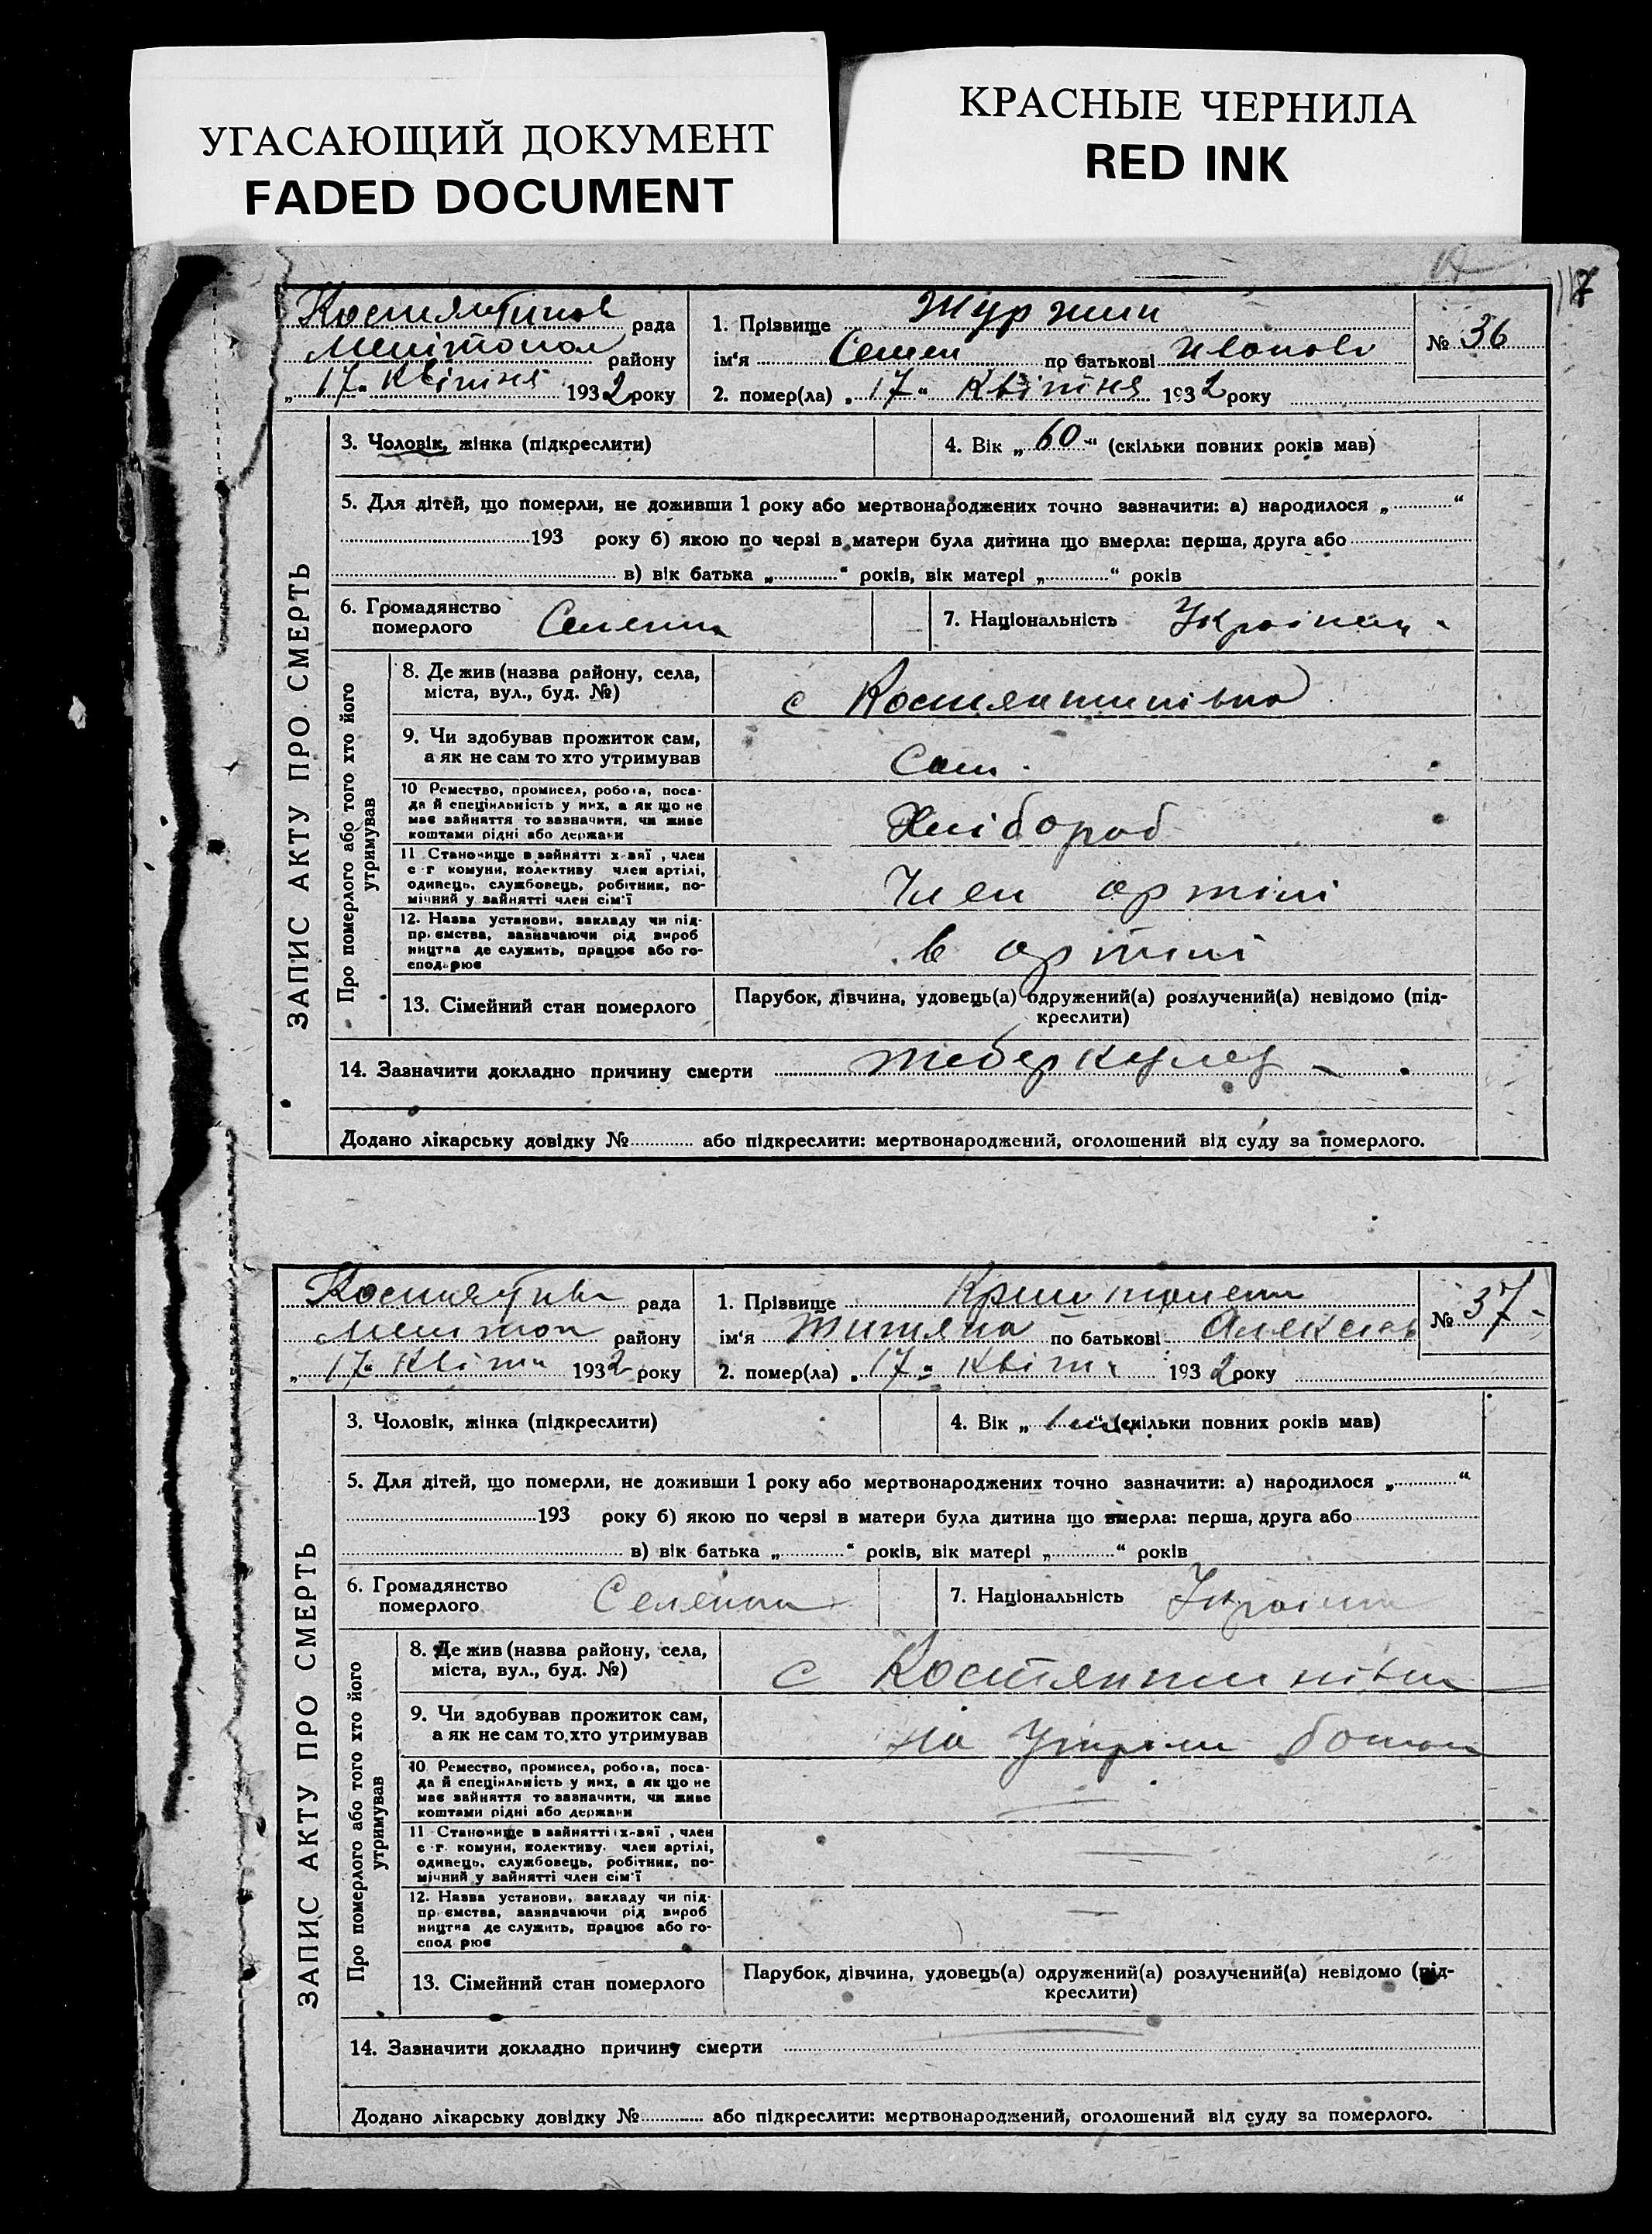 УГАСАЮЩИЙ ДОКУМЕНТ
FADED DOCUMENT
КРАСНЫЕ ЧЕРНИЛА
RED INK
рада
1. Прізвище Журжин
№ 36
району
ім'я Семен по батькові Иванов
„17“ Квітня 1932 року
2. помер(ла) „17“ Квітня 1932 року
ЗАПИС АКТУ ПРО СМЕРТЬ
3. Чоловік, жінка (підкреслити)
4. Вік „60“ (скільки повних років мав)
5. Для дітей, що померли, не доживши 1 року або мертвонароджених точно зазначити: а) народилося „ “
193 року б) якою по черзі в матери була дитина що вмерла: перша, друга або
в) вік батька „ “ років, вік матері „ “ років
6. Громадянство
померлого
7. Національність Українец
Про померлого або того хто його
утримував
8. Де жив (назва району, села,
міста, вул., буд. №)
с Костянтинівка
9. Чи здобував прожиток сам,
а як не сам то хто утримував
Сам
10 Ремество, промисел, робота, поса-
да й спеціяльність у них, а як що не
має зайняття то зазначити, чи живе
коштами рідні або держави
Хлібороб
11 Становище в зайнятті х-зяї, член
с-г комуни, колективу член артілі,
одинець, службовець, робітник, по-
мічний у зайнятті член сім'ї
Член артілі
12. Назва установи, закладу чи під-
приємства, зазначаючи рід вироб
ництва де служить, працює або го-
сподарює
в артілі
13. Сімейний стан померлого
Парубок, дівчина, удовець(а) одружений(а) розлучений(а) невідомо (під-
креслити)
14. Зазначити докладно причину смерти теберкулез
Додано лікарську довідку № або підкреслити: мертвонароджений, оголошений від суду за померлого.
рада
1. Прізвище
№ 37
району
ім'я Титяна по батькові
„17“ Квітн 1932 року
2. помер(ла) „17“ Квітн 1932 року
ЗАПИС АКТУ ПРО СМЕРТЬ
3. Чоловік, жінка (підкреслити)
4. Вік „1 “ (скільки повних років мав)
5. Для дітей, що померли, не доживши 1 року або мертвонароджених точно зазначити: а) народилося „ “
193 року б) якою по черзі в матери була дитина що вмерла: перша, друга або
в) вік батька „ “ років, вік матері „ “ років
6. Громадянство
померлого
7. Національність
Про померлого або того хто його
утримував
8. Де жив (назва району, села,
міста, вул., буд. №)
с Костянтинівка
9. Чи здобував прожиток сам,
а як не сам то хто утримував
на
10 Ремество, промисел, робота, поса-
да й спеціяльність у них, а як що не
має зайняття то зазначити, чи живе
коштами рідні або держави
11 Становище в зайнятті х-зяї, член
с-г комуни, колективу член артілі,
одинець, службовець, робітник, по-
мічний у зайнятті член сім'ї
12. Назва установи, закладу чи під-
приємства, зазначаючи рід вироб
ництва де служить, працює або го-
сподарює
13. Сімейний стан померлого
Парубок, дівчина, удовець(а) одружений(а) розлучений(а) невідомо (під-
креслити)
14. Зазначити докладно причину смерти
Додано лікарську довідку № або підкреслити: мертвонароджений, оголошений від суду за померлого.